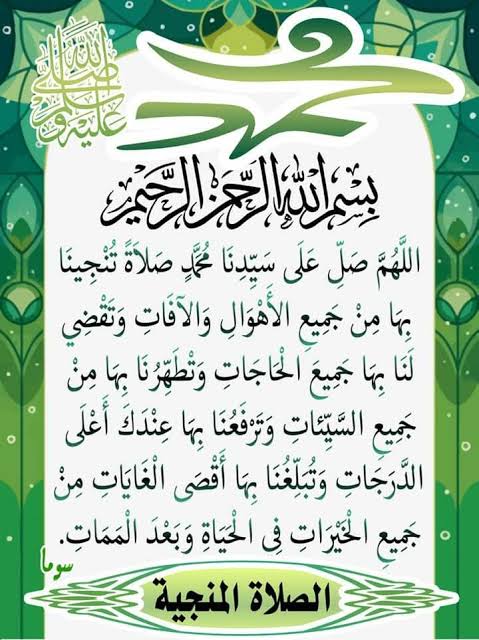 محمد
صلى الله عليه وسلم
بِسْمِ اللهِ الرَّحْمٰنِ الرَّحِيْمِ
اللَّهُمَّ صَلِّ عَلَى سَيِّدِنَا مُحَمَّدٍ صَلَاةً تُنْجِينَا
بِهَا مِنْ جَمِيعِ الأَهْوَالِ وَالآفَاتِ وَتَقْضِي
لَنَا بِهَا جَمِيعَ الْحَاجَاتِ وَتُطَهِّرُنَا بِهَا مِنْ
جَمِيعِ السَّيِّئَاتِ وَتَرْفَعُنَا بِهَا عِنْدَكَ أَعْلَى
الدَّرَجَاتِ وَتُبَلِّغُنَا بِهَا أَقْصَى الْغَايَاتِ مِنْ
جَمِيعِ الْخَيْرَاتِ فِي الْحَيَاةِ وَبَعْدَ الْمَمَاتِ.
سوما
الصلاة المنجية